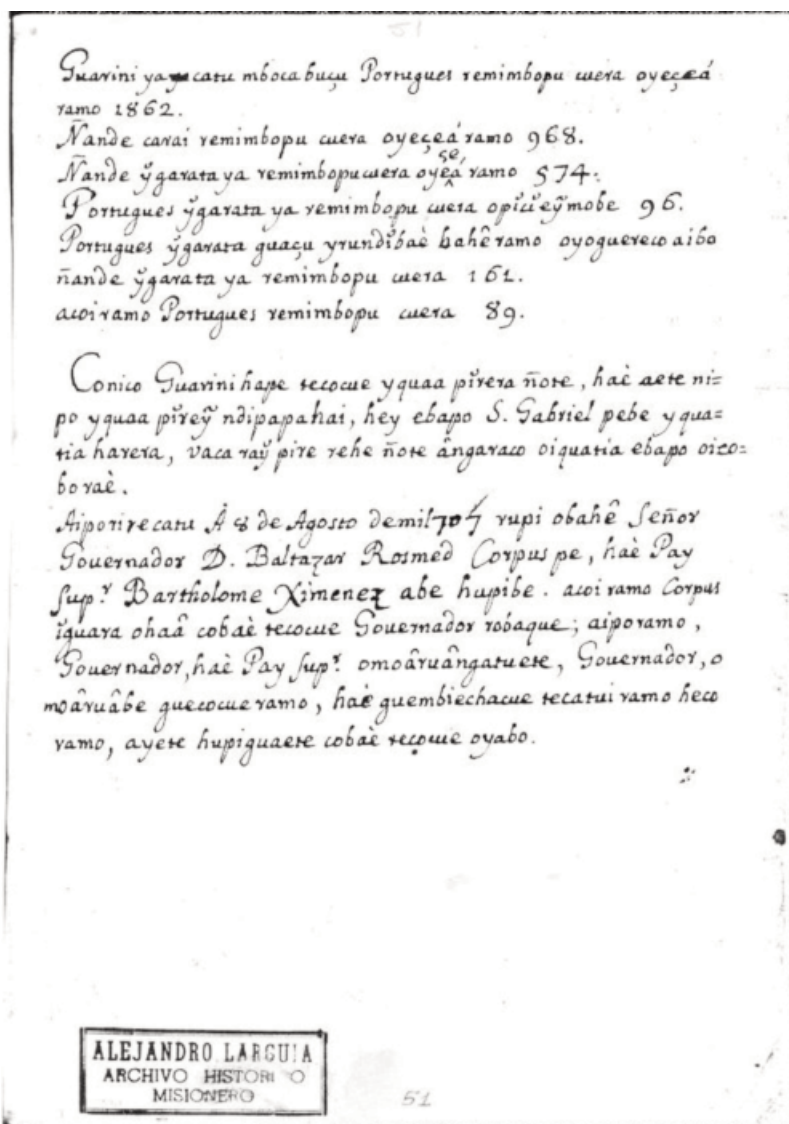 51
Guarini ya catu mboca buçu Portugues remimbopu cuera oyeçeá
ramo 1862.
Ñande carai remimbopu cuera oyeçeá ramo 968.
Ñande ỹgarata ya remimbopu cuera oyeseá ramo 574.
Portugues ỹgarata ya remimbopu cuera opĭcŭeỹmobe 96.
Portugues ỹgarata guaçu yrundĭbaè bahê ramo oyoguereco aibo
ñande ỹgarata ya remimbopu cuera 161.
acoiramo Portugues remimbopu cuera 89.
Conico Guarini hape tecocue yquaa pĭrera ñote, haè aete ni=
po yquaa pĭreỹ ndipapahai, hey ebapo S. Gabriel pebe yqua=
tia harera, vaca raỹ pire rehe ñote ângaraco oiquatia ebapo oico=
bo raè.
Aiporire catu À 8 de Agosto de mil 707 rupi obahê Señor
Governador D. Baltazar Rosmed Corpus pe, haè Pay
Sup.r Bartholome Ximenez abe hupibe. acoi ramo Corpus
ĭguara ohaâ cobaè tecocue Governador robaque; aiporamo,
Governador, haè Pay Sup.r omoârua̅ngatuete, Governador, o
moâruâbe guecocue ramo, haè guembiechacue tecatui ramo heco
ramo, ayete hupiguaete cobaè tecocue oyabo.
ALEJANDRO LARGUIA
ARCHIVO HISTORICO
MISIONERO
51